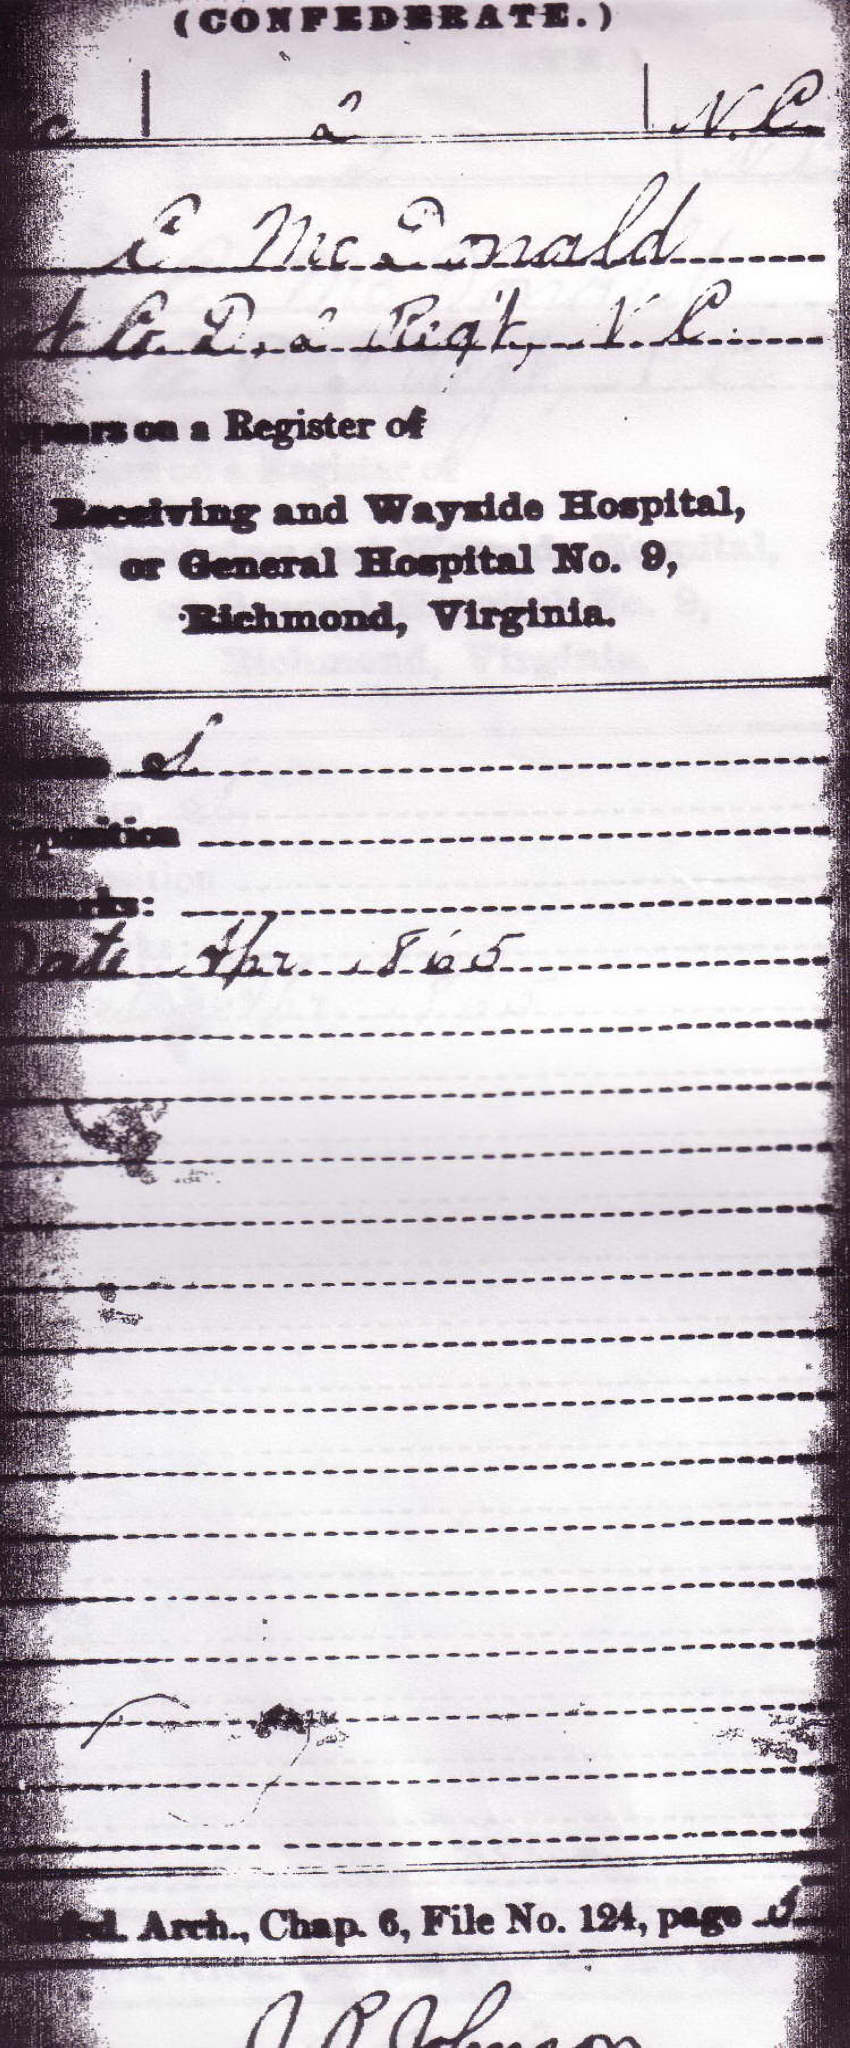 (CONFEDERATE.)
2 N.C.
E McDonald
Co. D. 2 Reg't, N.C.
appears on a Register of
Receiving and Wayside Hospital,
or General Hospital No. 9,
Richmond, Virginia.
S
Disposition
Remarks:
Date Apr 1865
Confed. Arch., Chap. 6, File No. 124, page
Johnson